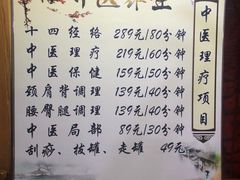 十四经络 289元/80分钟
中医理疗 219元/60分钟
中医保健 159元/50分钟
颈肩背调理 139元/40分钟
腰臀腿调理 139元/40分钟
中医局部 89元/30分钟
刮痧、拔罐、走罐 49元
中医理疗项目